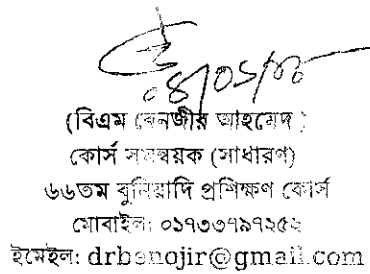 (বিএম বেনজীর আহমেদ)
কোর্স সমন্বয়ক (সাধারণ)
৬৬তম বুনিয়াদি প্রশিক্ষণ কোর্স
মোবাইল: ০১৭৩৩৭৯৭২৫২
ইমেইল: drbenojir@gmail.com